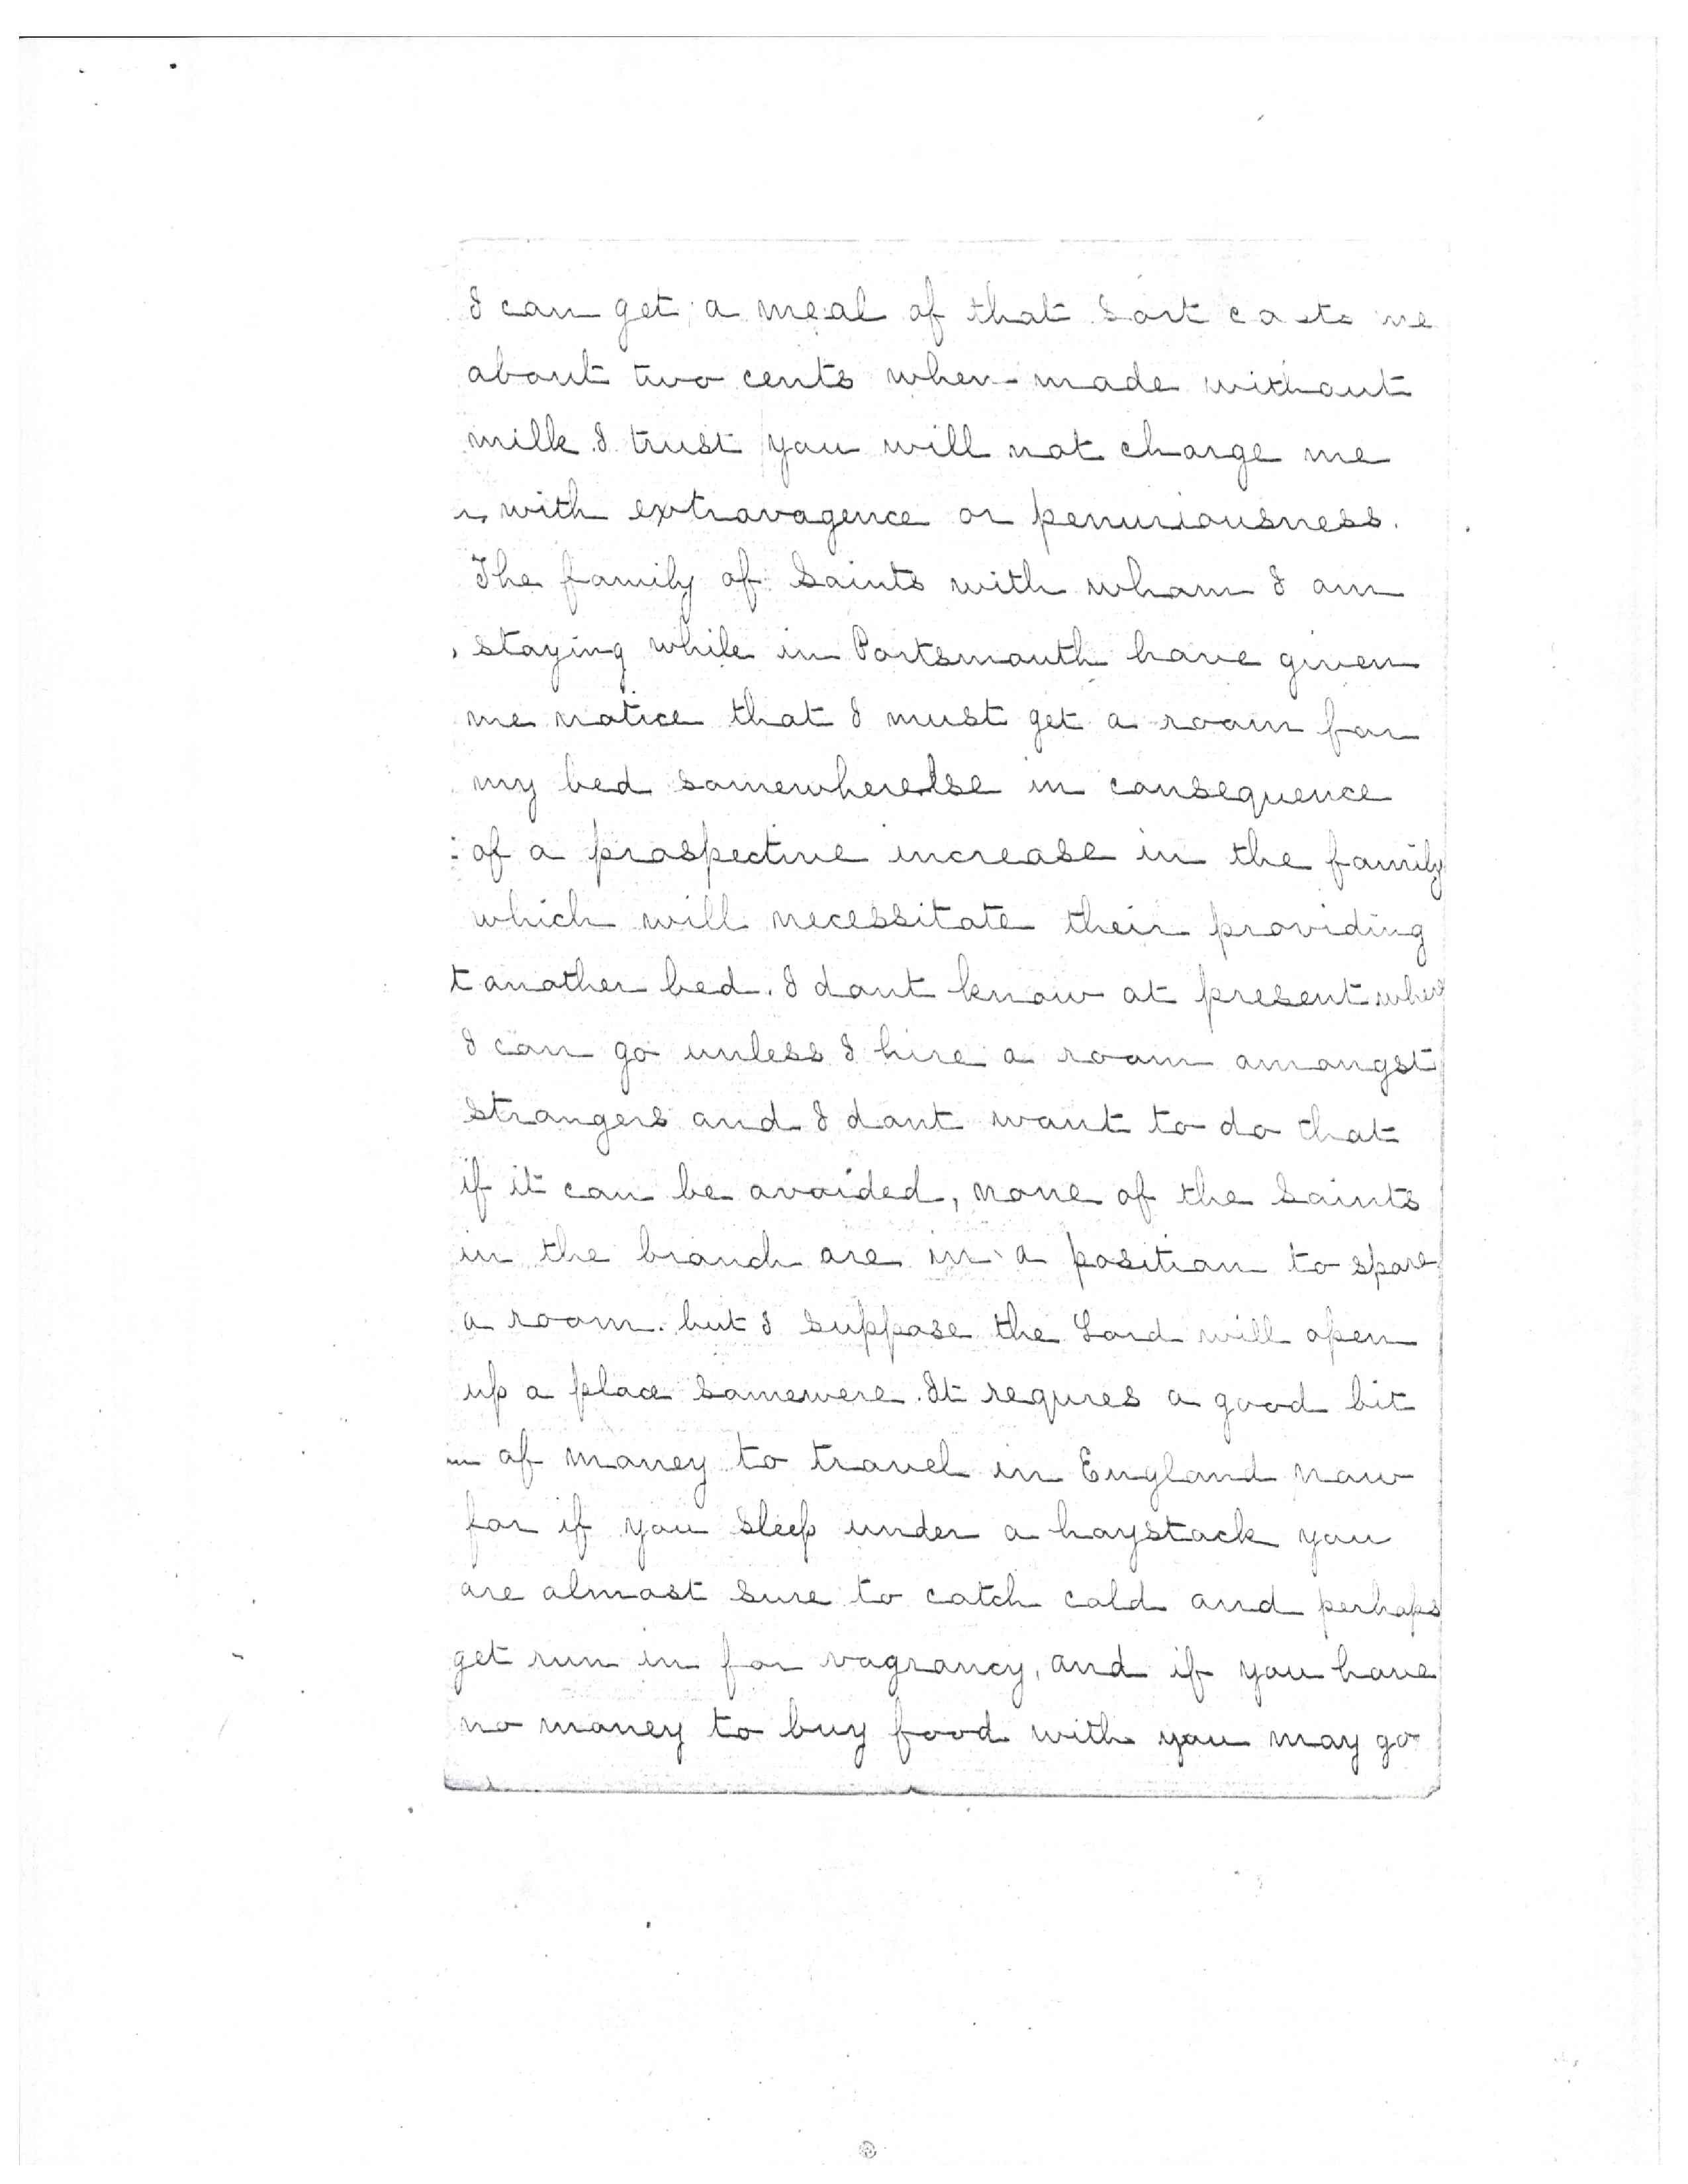 I can get a meal of that sort costs me
about two cents when made without
milk. I trust you will not charge me
with extravagence or penuriousness.
The family of Saints with whom I am
staying while in Portsmouth have given
me notice that I must get a room for
my bed somewherelse in consequence
of a prospective increase in the family
which will necessitate their providing
another bed. I dont know at present where
I can go unless I hire a room amongst
strangers and I dont want to do that
if it can be avoided, none of the Saints
in the branch are in a position to spare
a room. but I suppose the Lord will open
up a place somewere. It requres a good bit
of money to travel in England now
for if you sleep under a haystack you
are almost sure to catch cold and perhaps
get run in for vagrancy, and if you have
no money to buy food with you may go